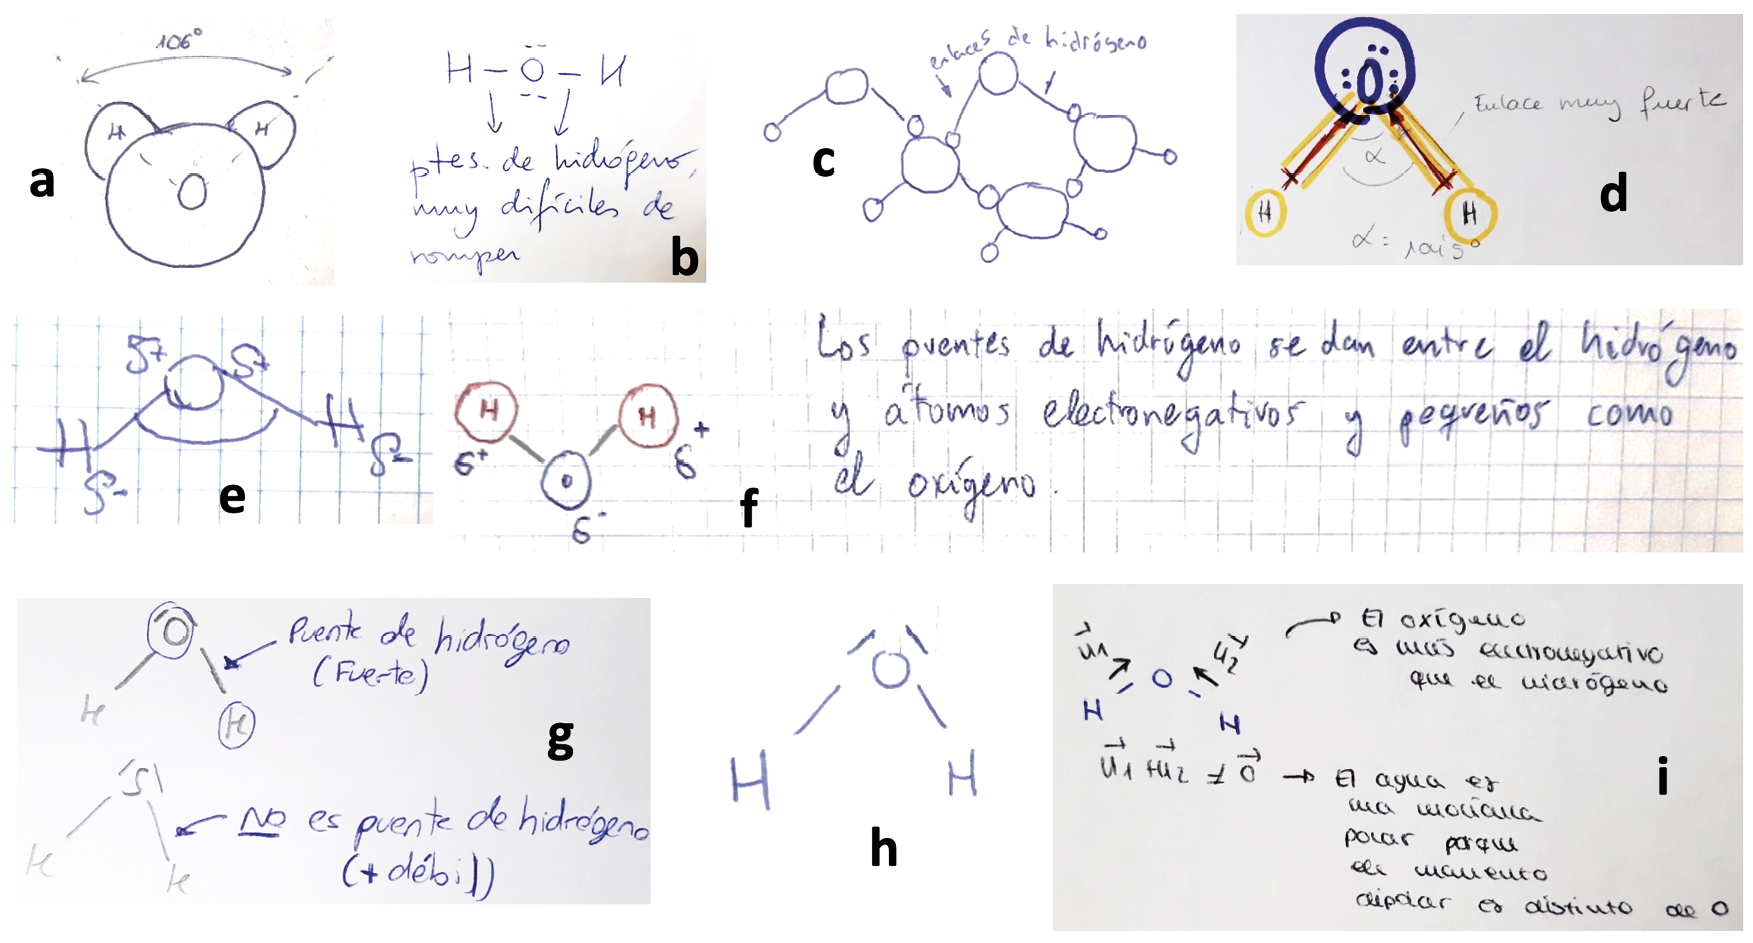 106°
H
H
O
a
H – O – H
ptes. de hidrógeno,
muy difíciles de
romper
b
enlaces de hidrógeno
c
O
Enlace muy fuerte
α
H
H
α =
d
δ+
δ+
H
H
δ-
δ-
e
H
H
δ+
δ+
δ-
f
Los puentes de hidrógeno se dan entre el hidrógeno
y átomos electronegativos y pequeños como
el oxígeno.
O
H
H
Puente de hidrógeno
(Fuerte)
S
H
H
NO es puente de hidrógeno
(+ débil)
g
O
H
H
h
u1
u2
O
H
H
El oxígeno
es más electronegativo
que el hidrógeno
u1 + u2 ≠ 0 → El agua es
una molécula
polar porque
el momento
dipolar es distinto de 0
i